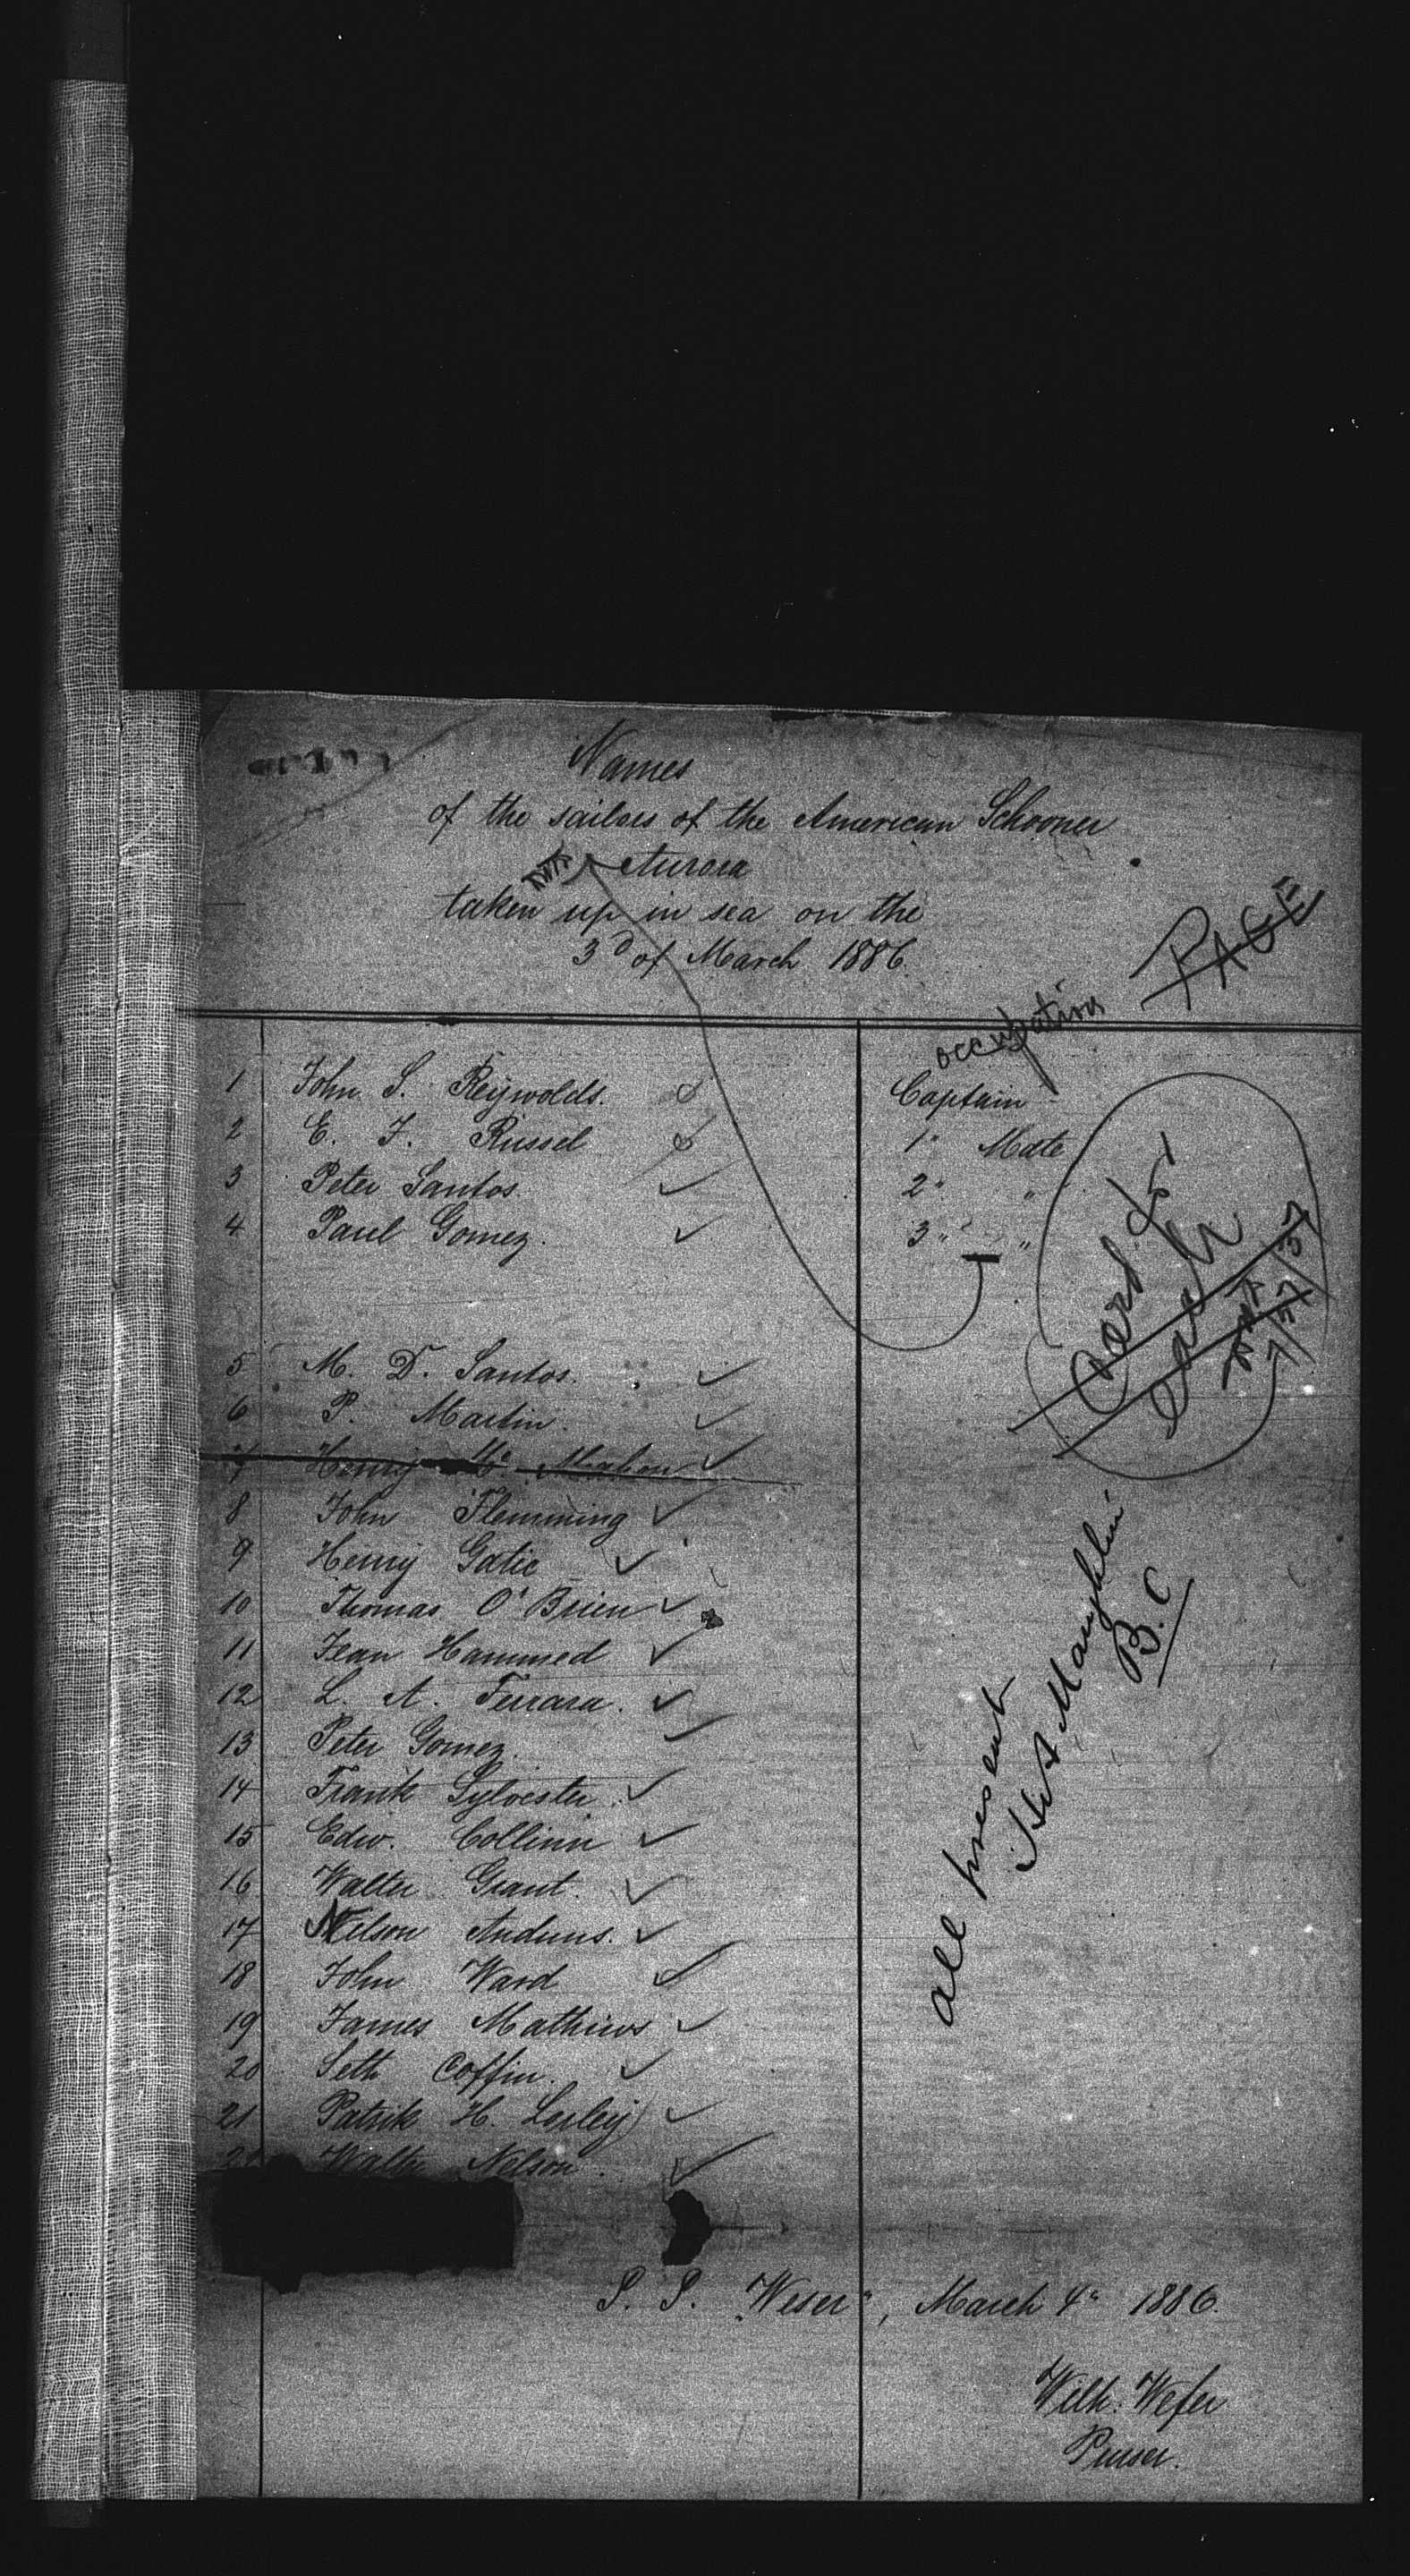 Names
of the sailors of the American Schooner
Aurora
taken up in sea on the
3d of March 1886.
PAGE
occupation
1 John S. Reijwolds. Captain
2 E. F. Russel 1" Mate
3 Peter Santos. 2" "
4 Paul Gomez. 3" "
Card
each
5 M. D. Santos.
6 P. Martin.
7 Henrij Mc Mahon
8 John Flemming
9 Henrij Gatie
10 Thomas O'Brien
11 Jean Hammed
12 L. A. Ferrara.
13 Peter Gomez.
14 Frank Sylvester.
15 Edw. Collinn
16 Walter Grant.
17 Nelson Anduns.
18 John Ward
19 James Mathiws
20 Seth Coffin.
21 Patrik H. Lesleij
22 Walter Nelson.
all present
Maughlin
B.C
S. S. "Weser", March 4" 1886.
Wilh: Wefer
Purser.